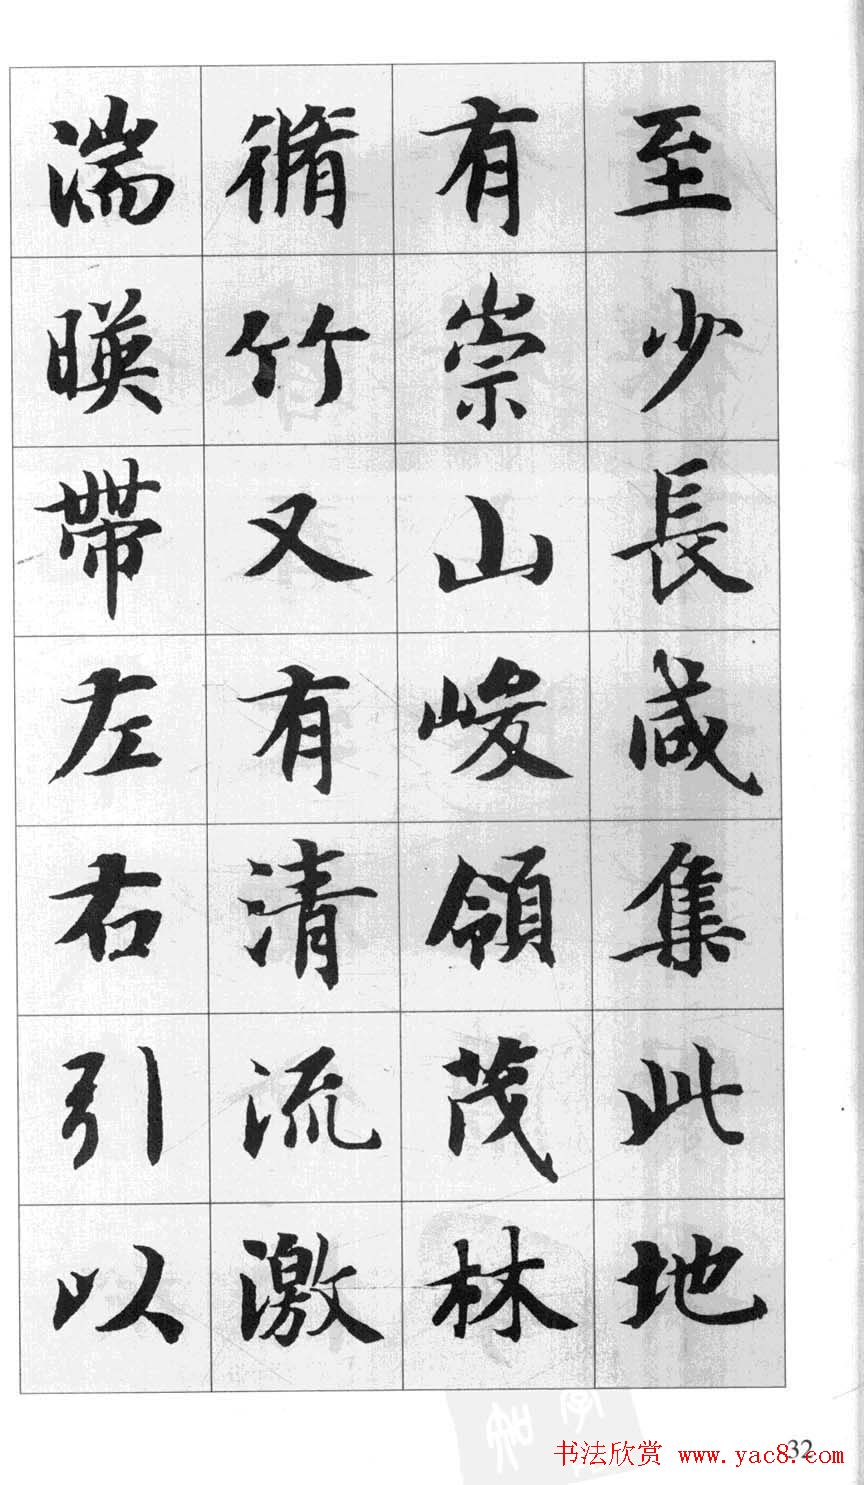 至少長咸集此地
有崇山峻領茂林
脩竹又有清流激
湍暎帶左右引以
32
书法欣赏 www.yac8.com